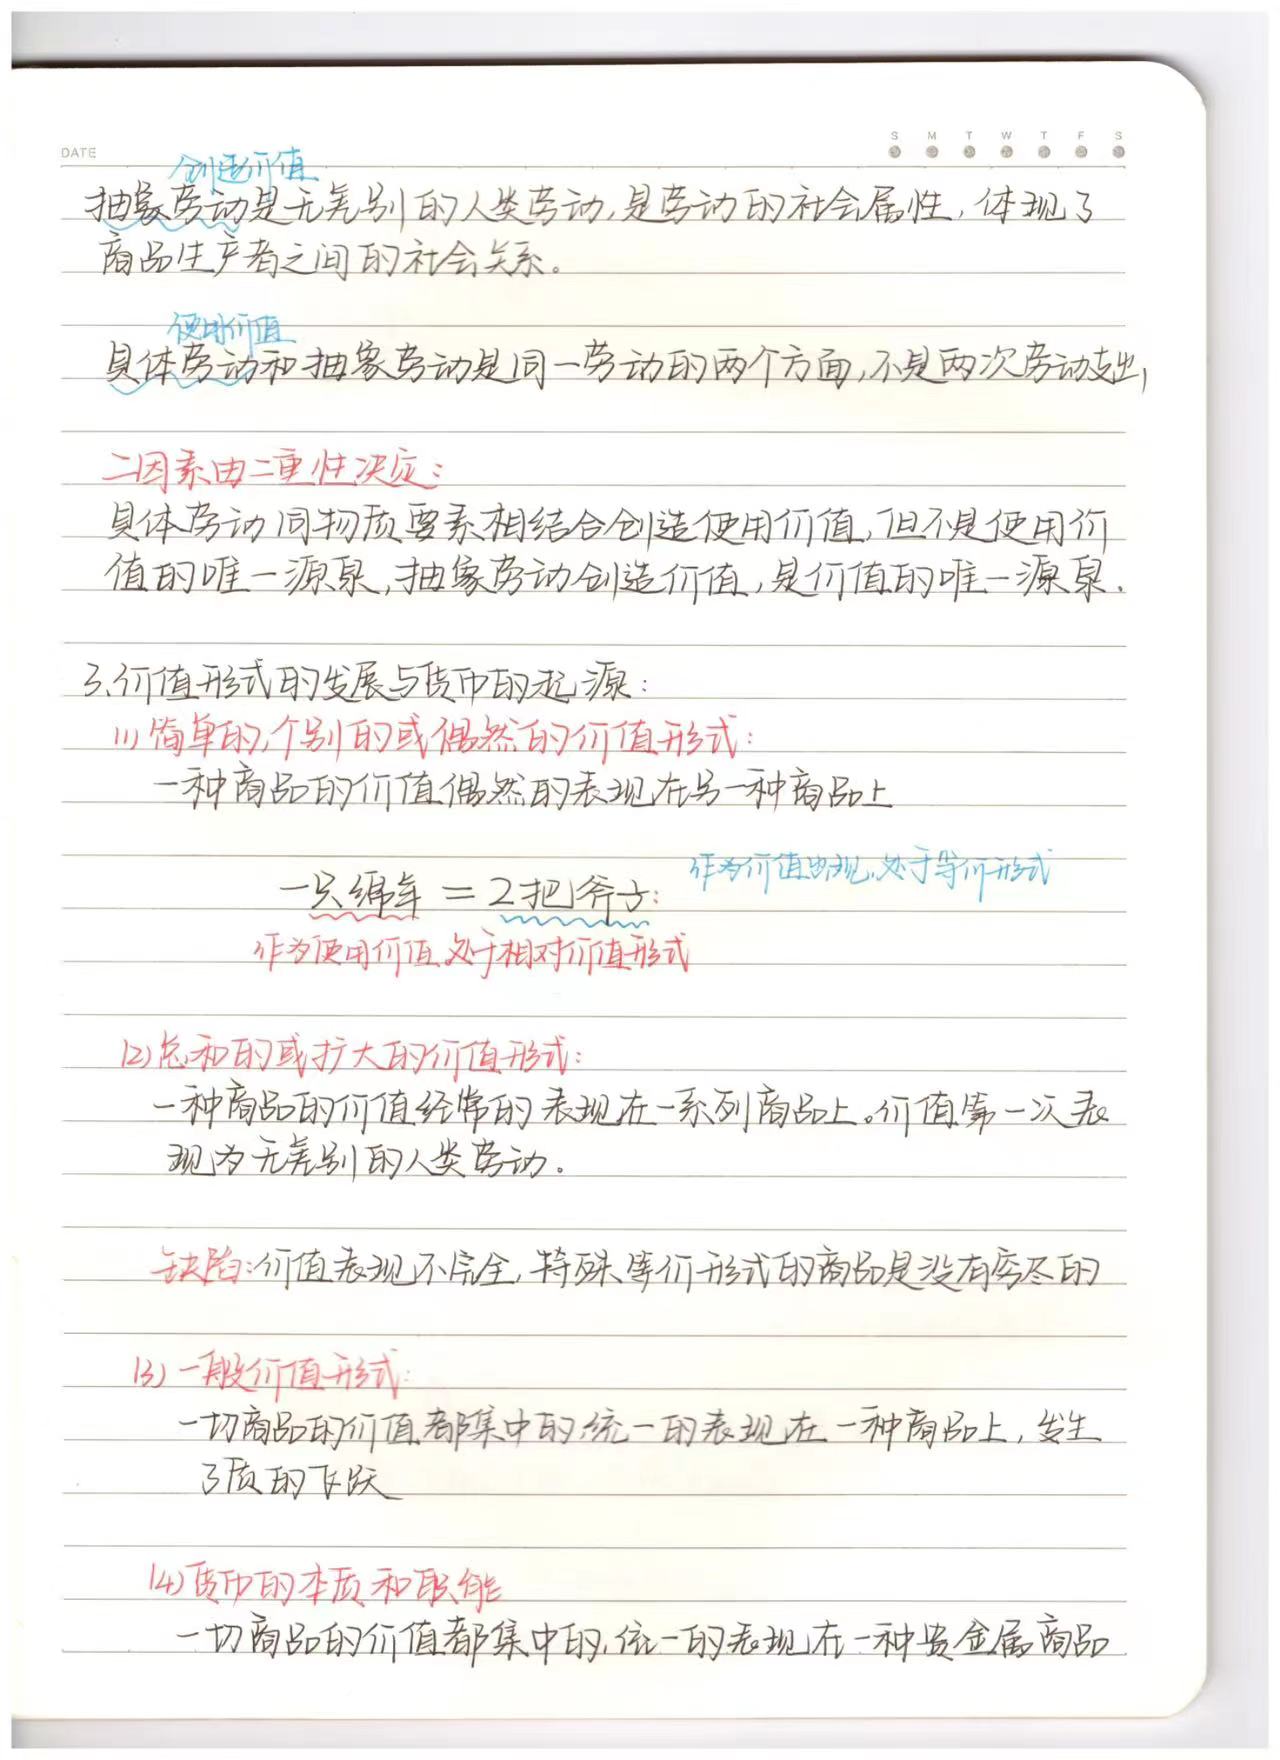 DATE
S M T W T F S
创造价值
抽象劳动是无差别的人类劳动,是劳动的社会属性,体现了
商品生产者之间的社会关系。
使用价值
具体劳动和抽象劳动是同一劳动的两个方面,不是两次劳动支出,
二因素由二重性决定:
具体劳动同物质要素相结合创造使用价值,但不是使用价
值的唯一源泉,抽象劳动创造价值,是价值的唯一源泉.
3.价值形式的发展与货币的起源:
(1)简单的,个别的或偶然的价值形式:
一种商品的价值偶然的表现在另一种商品上
作为价值出现,处于等价形式
一只绵羊 = 2把斧子:
作为使用价值,处于相对价值形式
(2)总和的或扩大的价值形式:
一种商品的价值经常的表现在一系列商品上。价值第一次表
现为无差别的人类劳动.
缺陷:价值表现不完全,特殊等价形式的商品是没有穷尽的
(3)一般价值形式:
一切商品的价值都集中的,统一的表现在一种商品上,发生
了质的飞跃
(4)货币的本质和职能
一切商品的价值都集中的,统一的表现在一种贵金属商品